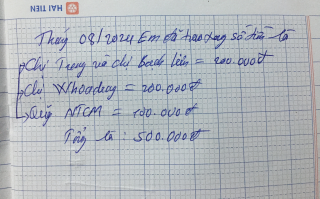 HẢI TIẾN
Tháng 08/2024 Em đã trao xong số tiền là
Chị Trang và chị Bạch Liên = 200.000đ
Chị = 200.000đ
Quỹ NTCM = 100.000đ
Tổng là : 500.000đ